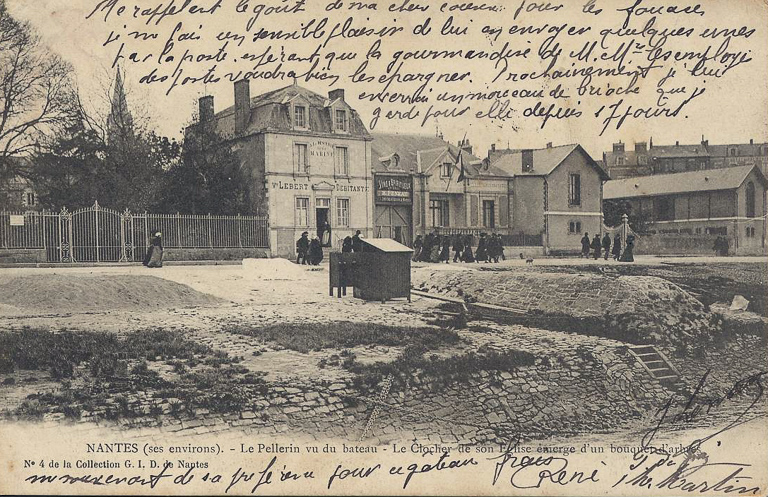 Me rappelant le goût de ma chère cousine pour les fouaces
je me fais un sensible plaisir de lui en envoyer quelques unes
par la poste, espérant que la gourmandise de M. Mrs les employés
des postes voudra bien les épargner. Prochainement je lui
enverrai un morceau de brioche que je
garde pour elle depuis 17 jours.
AU
MARIN
Vve LEBERT DEBITANTE
NANTES (ses environs). - Le Pellerin vu du bateau - Le Clocher de son Eglise émerge d'un bouquet d'arbres
No 4 de la Collection G. I. D. de Nantes
me souvenant de sa préférence pour ce gâteau frais
René
Martin